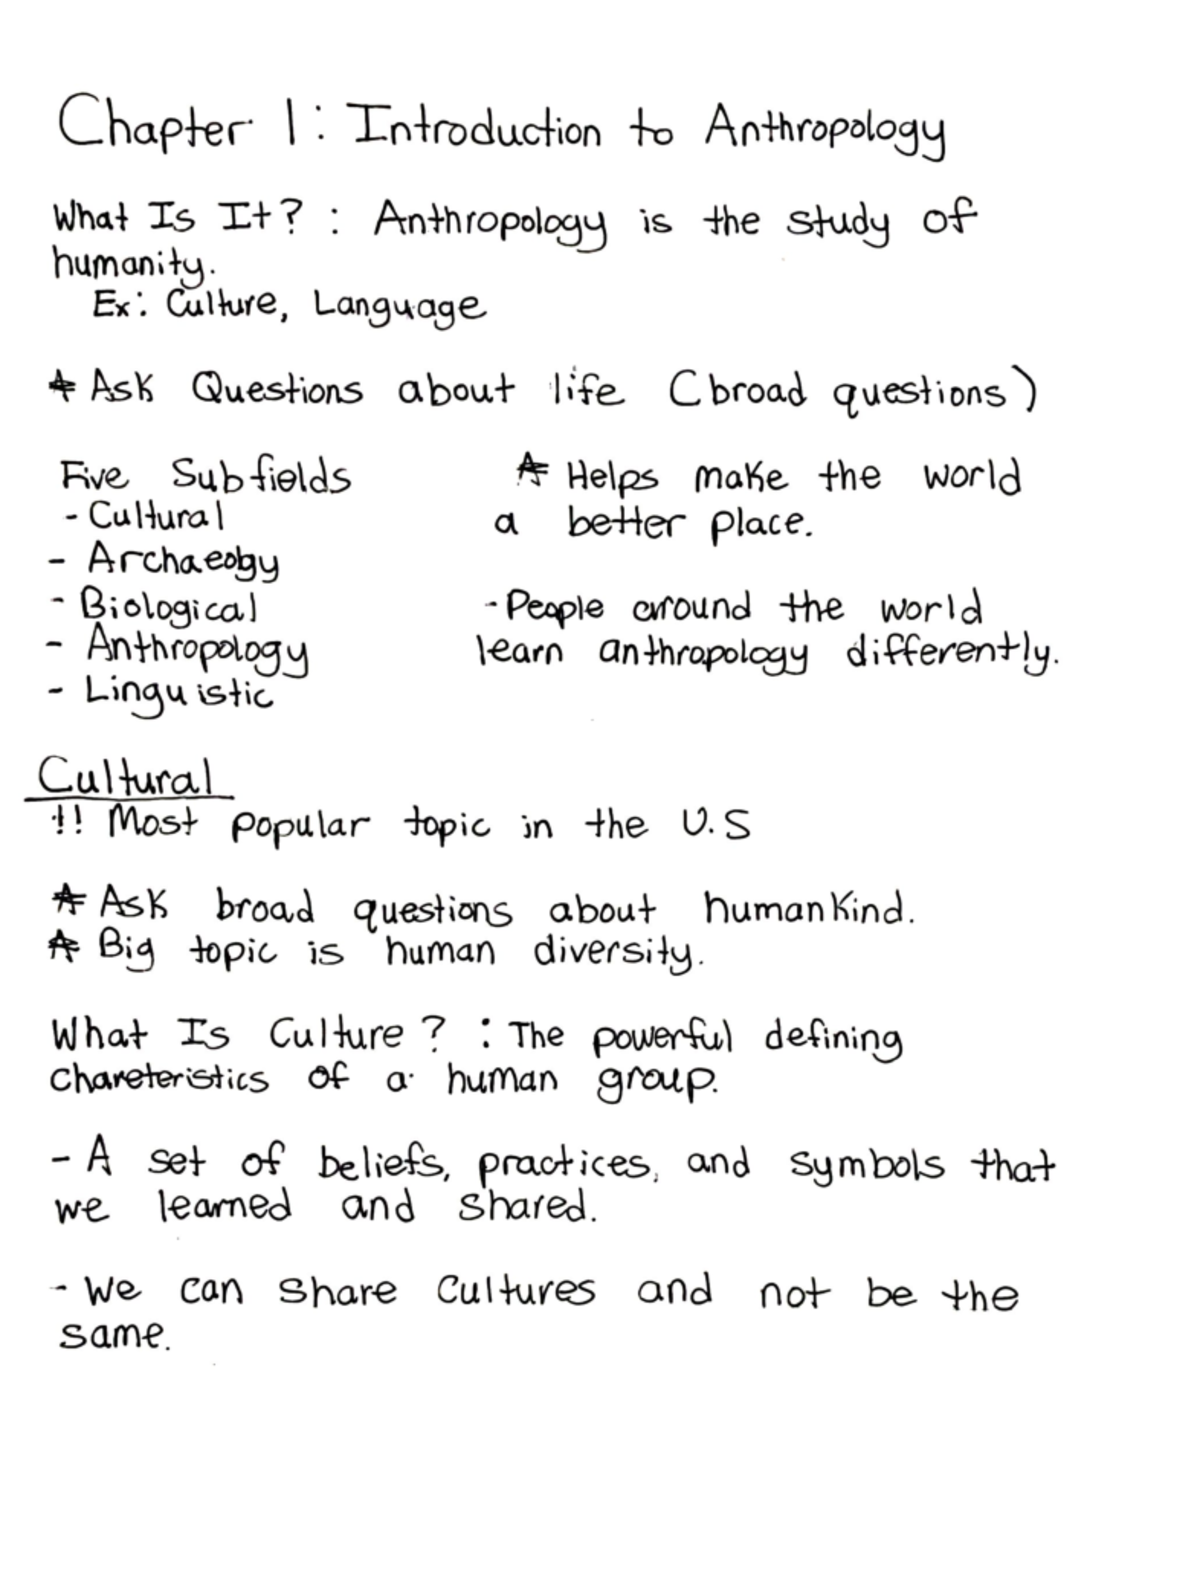 Chapter 1: Introduction to Anthropology
What Is It? : Anthropology is the study of
humanity.
Ex: Culture, Language
* Ask Questions about life (broad questions)
Five Subfields
- Cultural
- Archaeology
- Biological
- Anthropology
- Linguistic
* Helps make the world
a better place.
- People around the world
learn anthropology differently.
Cultural
!! Most popular topic in the U.S
* Ask broad questions about humankind.
* Big topic is human diversity.
What Is Culture? : The powerful defining
chareteristics of a human group.
- A set of beliefs, practices, and symbols that
we learned and shared.
- We can share cultures and not be the
same.